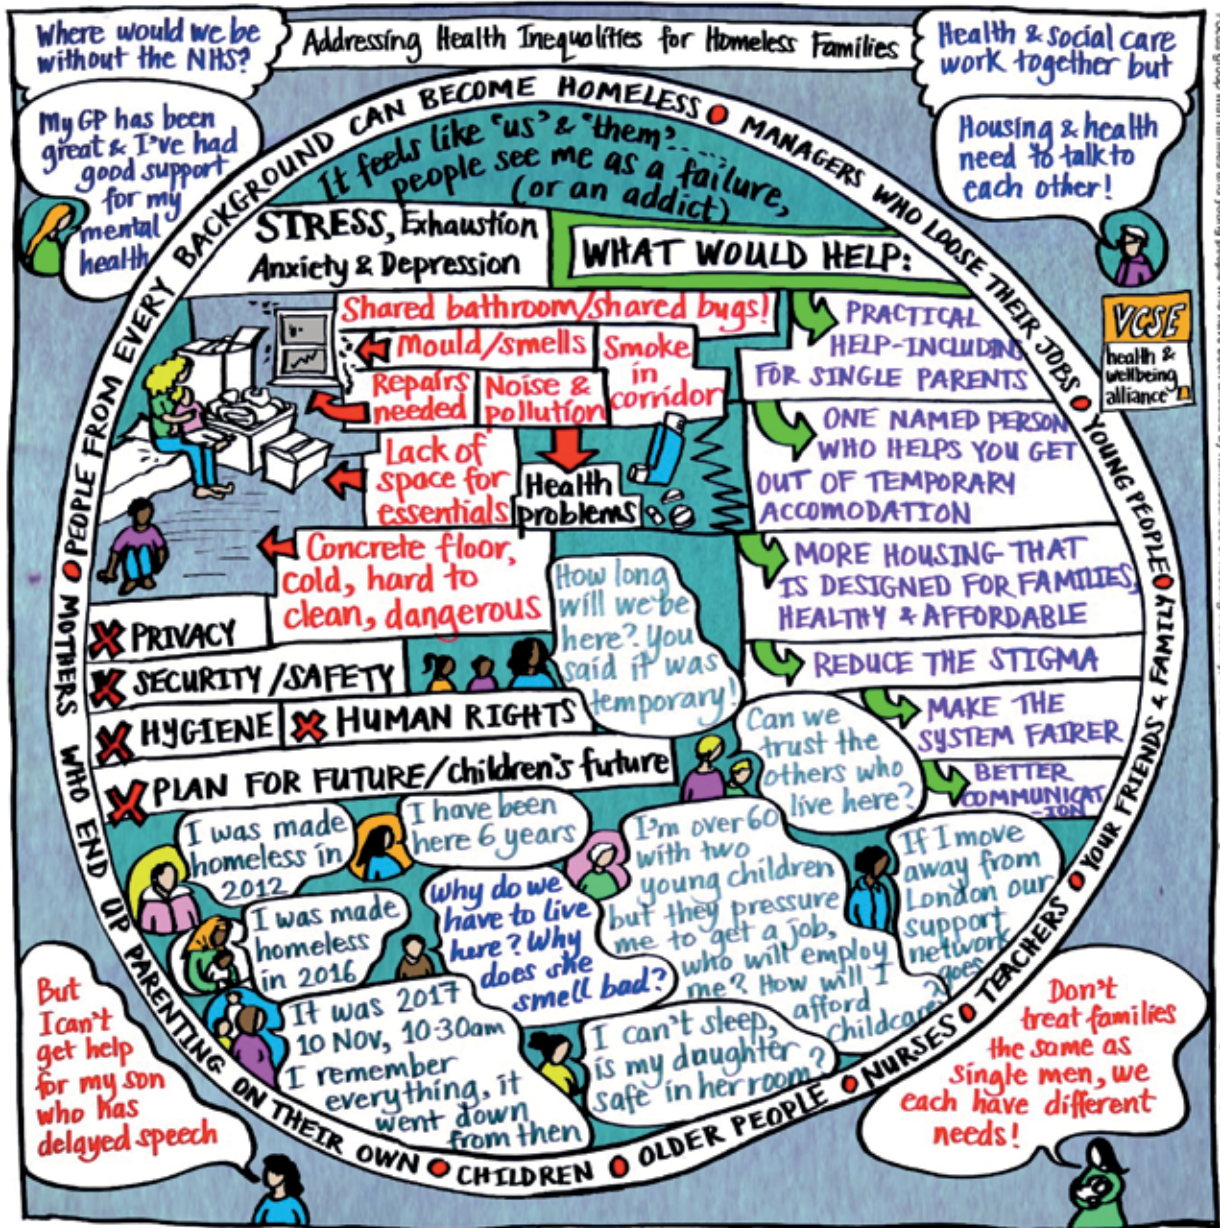 Where would we be
without the NHS?
Addressing Health Inequalities for Homeless Families
Health & social care
work together but
My GP has been
great & I've had
good support
for my
mental
health
Housing & health
need to talk to
each other!
PEOPLE FROM EVERY BACKGROUND CAN BECOME HOMELESS
MANAGERS WHO LOOSE THEIR JOBS
YOUNG PEOPLE
YOUR FRIENDS & FAMILY
TEACHERS
NURSES
OLDER PEOPLE
CHILDREN
MOTHERS WHO END UP PARENTING ON THEIR OWN
It feels like "us" & "them".....
people see me as a failure,
(or an addict)
STRESS, Exhaustion
Anxiety & Depression
WHAT WOULD HELP:
VCSE
health &
wellbeing
alliance
Shared bathroom/shared bugs!
Mould/smells
Smoke
in
corridor
Repairs
needed
Noise &
pollution
Lack of
space for
essentials
Health
problems
Concrete floor,
cold, hard to
clean, dangerous
PRACTICAL
HELP-INCLUDING
FOR SINGLE PARENTS
ONE NAMED PERSON
WHO HELPS YOU GET
OUT OF TEMPORARY
ACCOMODATION
MORE HOUSING THAT
IS DESIGNED FOR FAMILIES,
HEALTHY & AFFORDABLE
REDUCE THE STIGMA
MAKE THE
SYSTEM FAIRER
BETTER
COMMUNICAT
-ION
PRIVACY
SECURITY/SAFETY
HYGIENE
HUMAN RIGHTS
PLAN FOR FUTURE/children's future
How long
will we be
here? You
said it was
temporary!
Can we
trust the
others who
live here?
I was made
homeless in
2012
I have been
here 6 years
I'm over 60
with two
young children
but they pressure
me to get a job,
who will employ
me? How will I
afford
childcare?
If I move
away from
London our
support
network
goes
I was made
homeless
in 2016
Why do we
have to live
here? Why
does she
smell bad?
It was 2017
10 Nov, 10:30am
I remember
everything, it
went down
from then
I can't sleep,
is my daughter
safe in her room?
But
I can't
get help
for my son
who has
delayed speech
Don't
treat families
the same as
single men, we
each have different
needs!